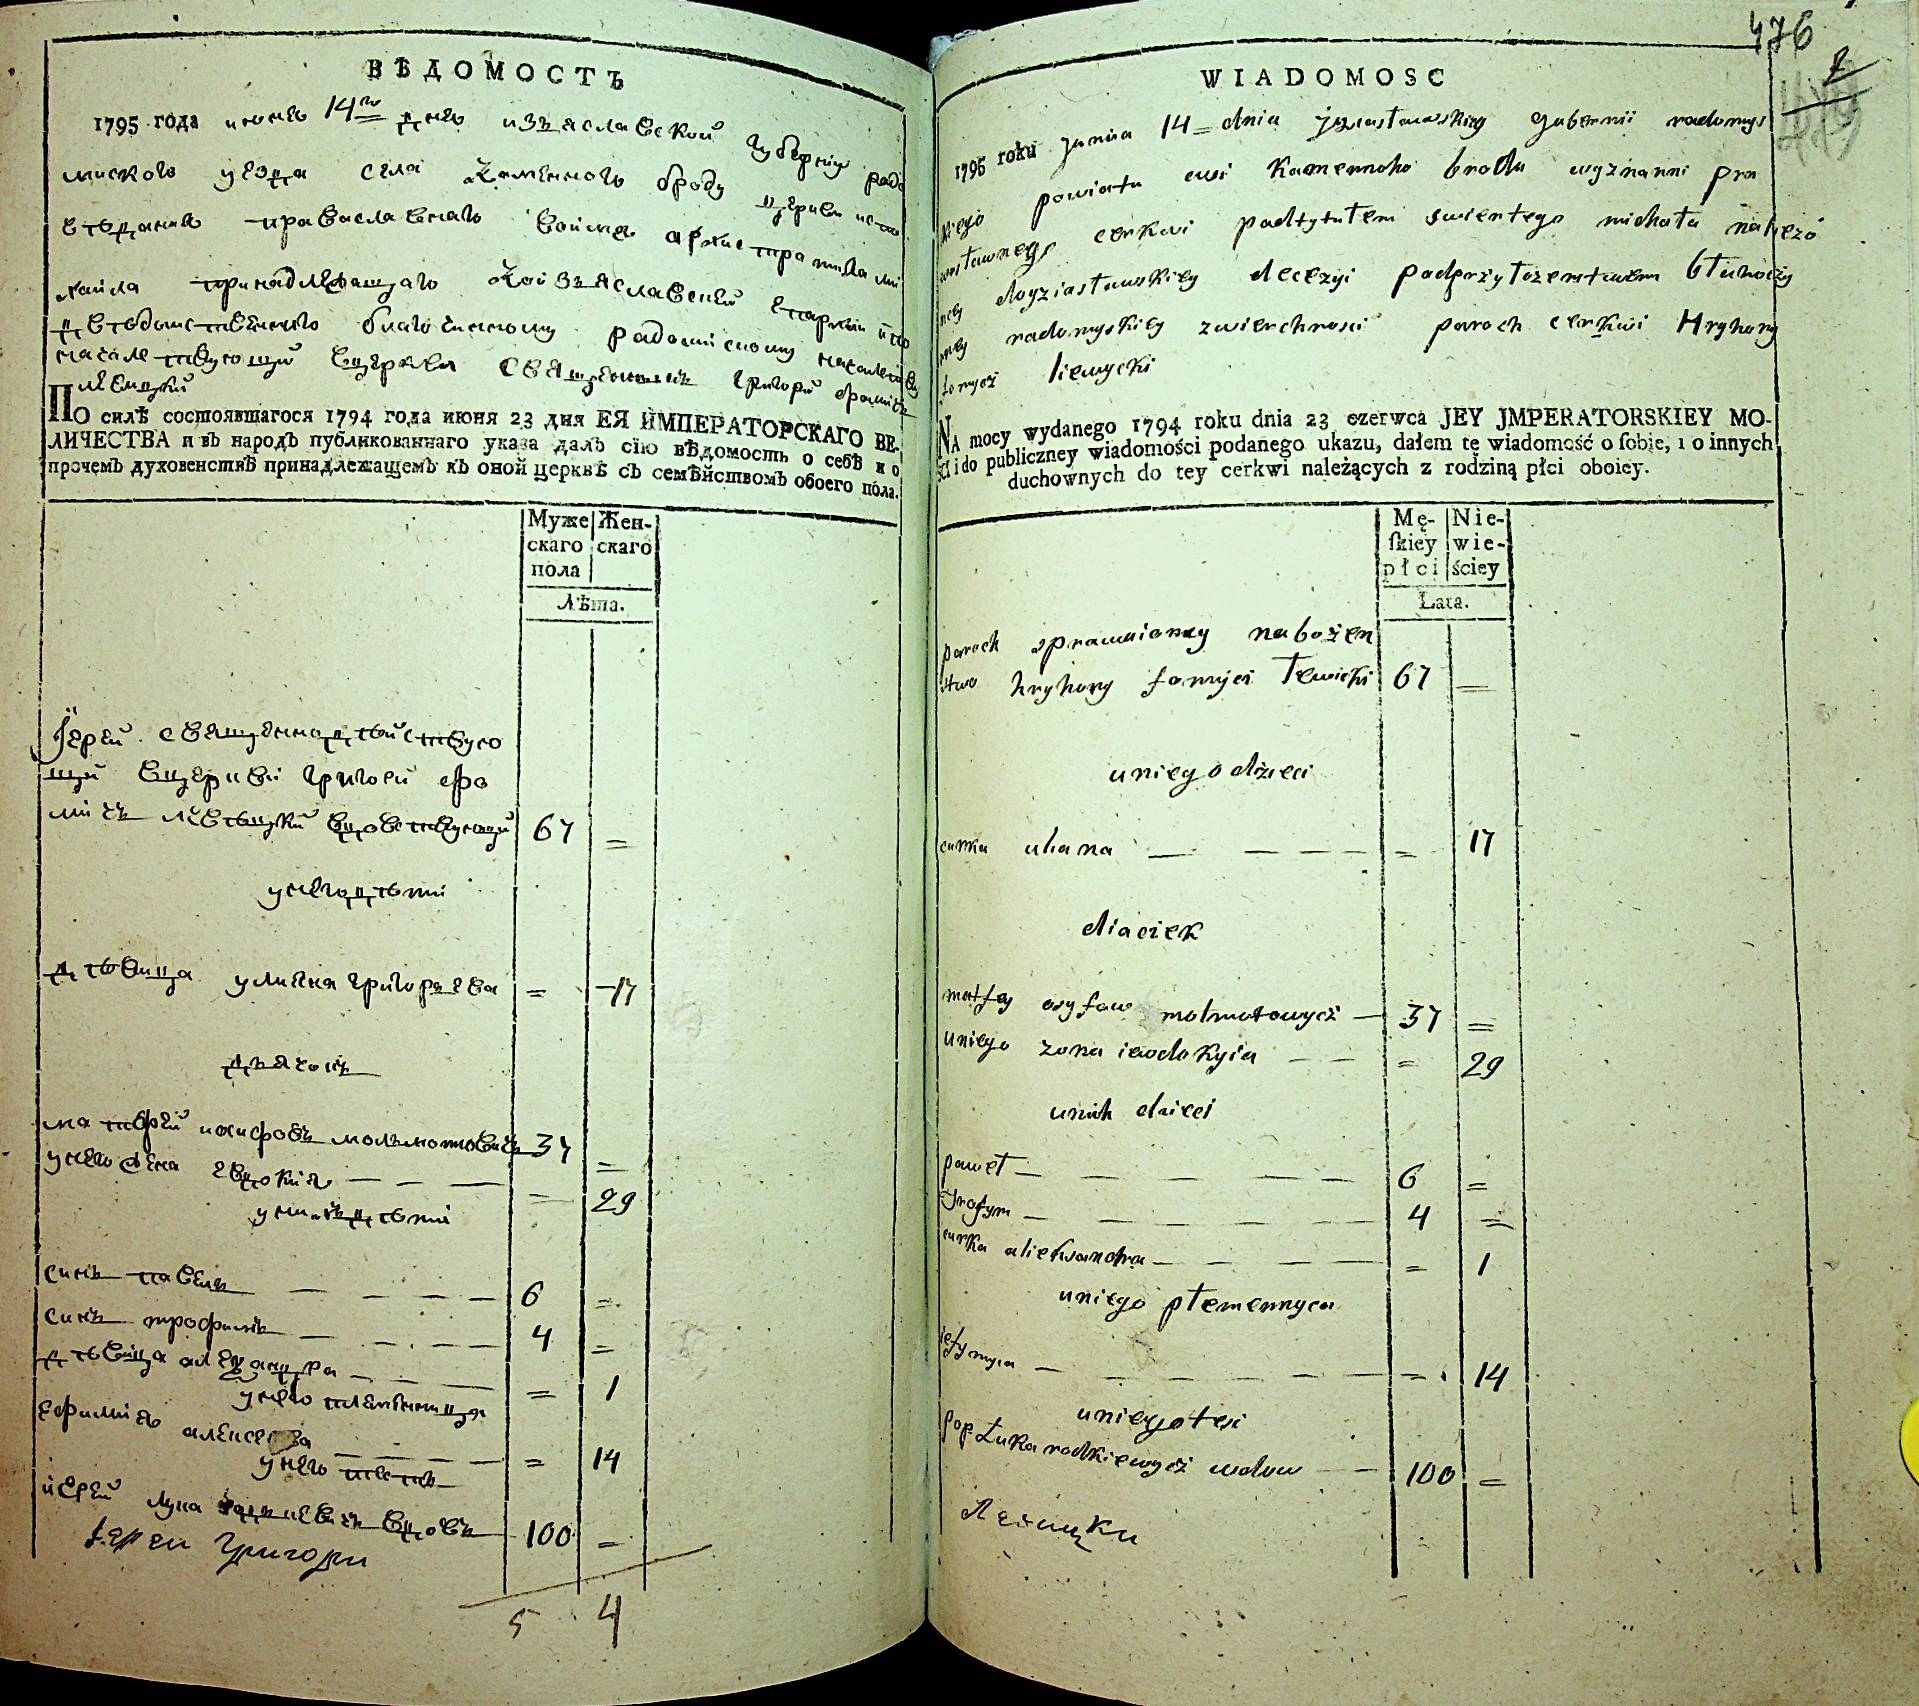 ВѢДОМОСТЬ
1795 года июня 14го дня изъяславской губерніи радо
миского уезда села Каменного броду церкви испо
втьданія православнаго воимя архистратига ми
хаила принадлежащаго Коизъяславской епархіи ипо
дведомственного благочинному радомискому началств
началствующій вцеркви священникъ григорій фомичъ
левицкій
ПО силѣ состоявшагося 1794 года июня 23 дня ЕЯ ИМПЕРАТОРСКАГО ВЕ-
ЛИЧЕСТВА и въ народъ публикованнаго указа далъ сію вѣдомость о себѣ и о
прочемъ духовенствѣ принадлежащемъ къ оной церквѣ съ семѣйствомъ обоего пола.
Муже Жен-
скаго скаго
пола
Лѣта.
Іерей священнодтьйствую
щій вцеркви григорей фо
мичъ левтьцкій вдовствующій 67 =
унегодтьти
дтьвица улияна григорьева = 17
дьячокъ
матвфей иосифовъ молмотовичъ 37 =
унего жена евдокия — — — = 29
унихъ дтьти
синъ павелъ — — — — 6 =
синъ трофимъ — — — — 4 =
дтьвица александра — — — = 1
унего племтьнница
ефимия алексеева — — — = 14
унего тесть
іерей лука радкевичъ вдовъ 100 =
Іерей Григори
5 4
476
2
WIADOMOSC
1795 roku junia 14 dnia Jzyiasławskiey gubernii radomys
kiego powiatu wsi Kamennoho brodu wyznanni pra
wosławnego cerkwi padtytułem swientego michała należó
ncey doyziasławskiey decezyi padprzyłożenstwem błahoczy
nney radomyskiey zwierchnosci paroch cerkwi Hryhory
fomycz liewycki
NA mocy wydanego 1794 roku dnia 23 czerwca JEY JMPERATORSKIEY MO-
ŚCI i do publiczney wiadomości podanego ukazu, dałem tę wiadomość o ſobie, i o innych
duchownych do tey cerkwi należących z rodziną płci oboiey.
Mę- Nie-
ſkiey wie-
płci ściey
Lata.
paroch sprawuioncy nabożen
stwo hryhory fomycz lewicki 67 =
uniego dzieci
curka uliana — — — — = 17
diaciek
matfey osyfow molmotowycz — 37 =
uniego zona iewdokyia — — = 29
unich dzieci
paweł — — — — — 6 =
trofym — — — — — 4 =
curka alieksandra — — — — = 1
uniego płemennyca
iefymyia — — — — — = 14
uniego tesc
pop Łuka radkiewycz wdow — — 100 =
Левицки